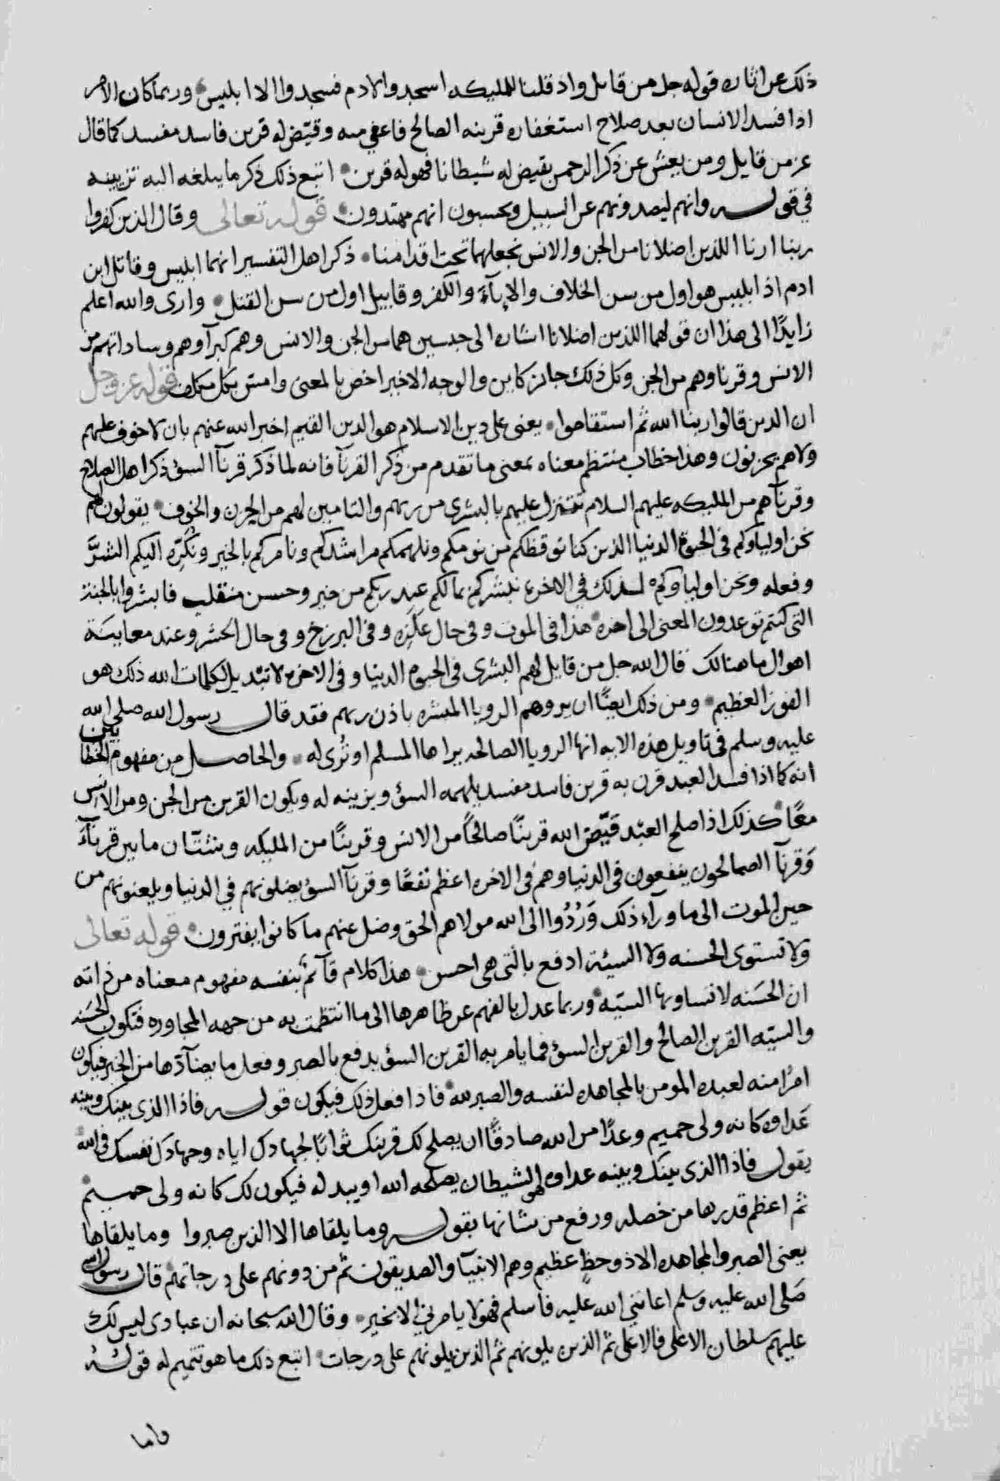 ذلك عن اثاره قوله جل من قايل واذ قلنا للمليكه اسجدوا لادم فسجدوا الا ابليس وربما كان الامر
اذا فسد الانسان بعد صلاح استغفاره قرينه الصالح فاعفي منه وقيض له قرين فاسد مفسد كما قال
عز من قايل ومن يعش عن ذكر الرحمن نقيض له شيطانا فهو له قرين اتبع ذلك ذكر ما يبلغه اليه تزيينه
في قوله وانهم ليصدونهم عن السبيل ويحسبون انهم مهتدون قوله تعالى وقال الذين كفروا
ربنا ارنا اللذين اضلانا من الجن والانس نجعلهما تحت اقدامنا ذكر اهل التفسير انهما ابليس وقاتل ابن
ادم اذ ابليس هو اول من سن الخلاف والاباءة والكفر وقابيل اول من سن القتل وارى والله اعلم
زايدًا الى هذا ان قولهما اللذين اضلانا اشاره الى جنسين هما من الجن والانس وهم كبرآوهم وساداتهم من
الانس وقرناوهم من الجن وكل ذلك جائز كاين والوجه الاخير اخص بالمعنى وامس بكل مكلف قوله عز وجل
ان الذين قالوا ربنا الله ثم استقاموا يعني على دين الاسلام هو الدين القيم اخبر الله عنهم بان لا خوف عليهم
ولا هم يحزنون وهذا خطاب منتظم معناه بمعنى ما تقدم من ذكر القرنآ فانه لما ذكر قرنآ السؤ ذكر اهل الصلاح
وقرنآهم من المليكه عليهم السلام تتنزل عليهم بالبشرى من ربهم والتامين لهم من الحزن والخوف يقولون لهم
نحن اولياوكم في الحيوة الدنيا الذين كنا نوقظكم من نومكم ونلهمكم مراشدكم ونامركم بالخير ونُكرّه اليكم الشرَّ
وفعله ونحن اولياوكم كذلك في الاخرة نبشركم بما لكم عند ربكم من خير وحسن منقلب فابشروا بالجنة
التي كنتم توعدون المعنى الى اخره هذا في الموت وفي حال علزه وفي البرزخ وفي حال الحشر وعند معاينة
اهوال ما هنالك قال الله جل من قايل لهم البشرى في الحيوة الدنيا وفي الاخرة لا تبديل لكلمات الله ذلك هو
الفوز العظيم ومن ذلك ايضًا ان يروهم الرويا المبشره باذن ربهم فقد قال رسول الله صلى الله
عليه وسلم في تاويل هذه الايه انها الرويا الصالحه يراها المسلم او تُرى له والحاصل من مفهوم الخطاب
انه كما اذا فسد العبد قرن به قرين فاسد مفسد يلهمه السؤ ويزينه له ويكون القرين من الجن ومن الانس
معًا كذلك اذا صلح العبد قيّض الله قرينًا صالحًا من الانس وقرينًا من المليكه وشتّان ما بين قرنآءَ
وَقرنآ الصالحون ينفعون في الدنيا وهم في الاخره اعظم نفعًا وقرنآ السؤ يضلونهم في الدنيا ويلعنونهم من
حين الموت الى ما ورآء ذلك وَرُدُوا الى الله مولاهم الحق وضل عنهم ما كانوا يفترون قوله تعالى
ولا تستوى الحسنه ولا السيئة ادفع بالتي هي احسن هذا كلام قآئم بنفسه مفهوم معناه من ذاته
ان الحَسَنه لا تساويها السيّه وربما عدل بالفهم عن ظاهرها الى ما انتظمت به من جهه المجاوره فتكون الحسنه
والسيّه القرين الصالح والقرين السؤ فما يامر به القرين السؤ يدفع بالصبر وفعل ما يضآدّها من الخير فيكون
امرًا منه لعبده المومن بالمجاهده لنفسه والصبر لله فاذا فعل ذلك فيكون قوله فاذا الذي بينك وبينه
عَداوه كانه ولي حميم وعدًا من الله صادقًا ان يصلح لك قرينك ثوابًا لجهادك اياه وجهادك نفسك في الله
يقول فاذا الذي بينك وبينه عداوه الشيطان يصلحه الله او يبدله فيكون لك كانه ولي حميم
ثم اعظم قدرها من خصله ورفع من شانها بقوله وما يلقاها الا الذين صبروا وما يلقاها
يعنى الصبر والمجاهده الا ذو حظٍ عظيم وهم الانبيآ والصديقون ثم من دونهم على درجاتهم قال رسول الله
صَلى الله عليه وسلم اعانني الله عليه فأسلم فهو لا يامرني الا بخير وقال الله سبحانه ان عبادى ليس لك
عليهم سلطان الاعلى فالاعلى ثم الذين يلونهم ثم الذين يلونهم على درجات اتبع ذلك ما هو تتميم له قوله
واما